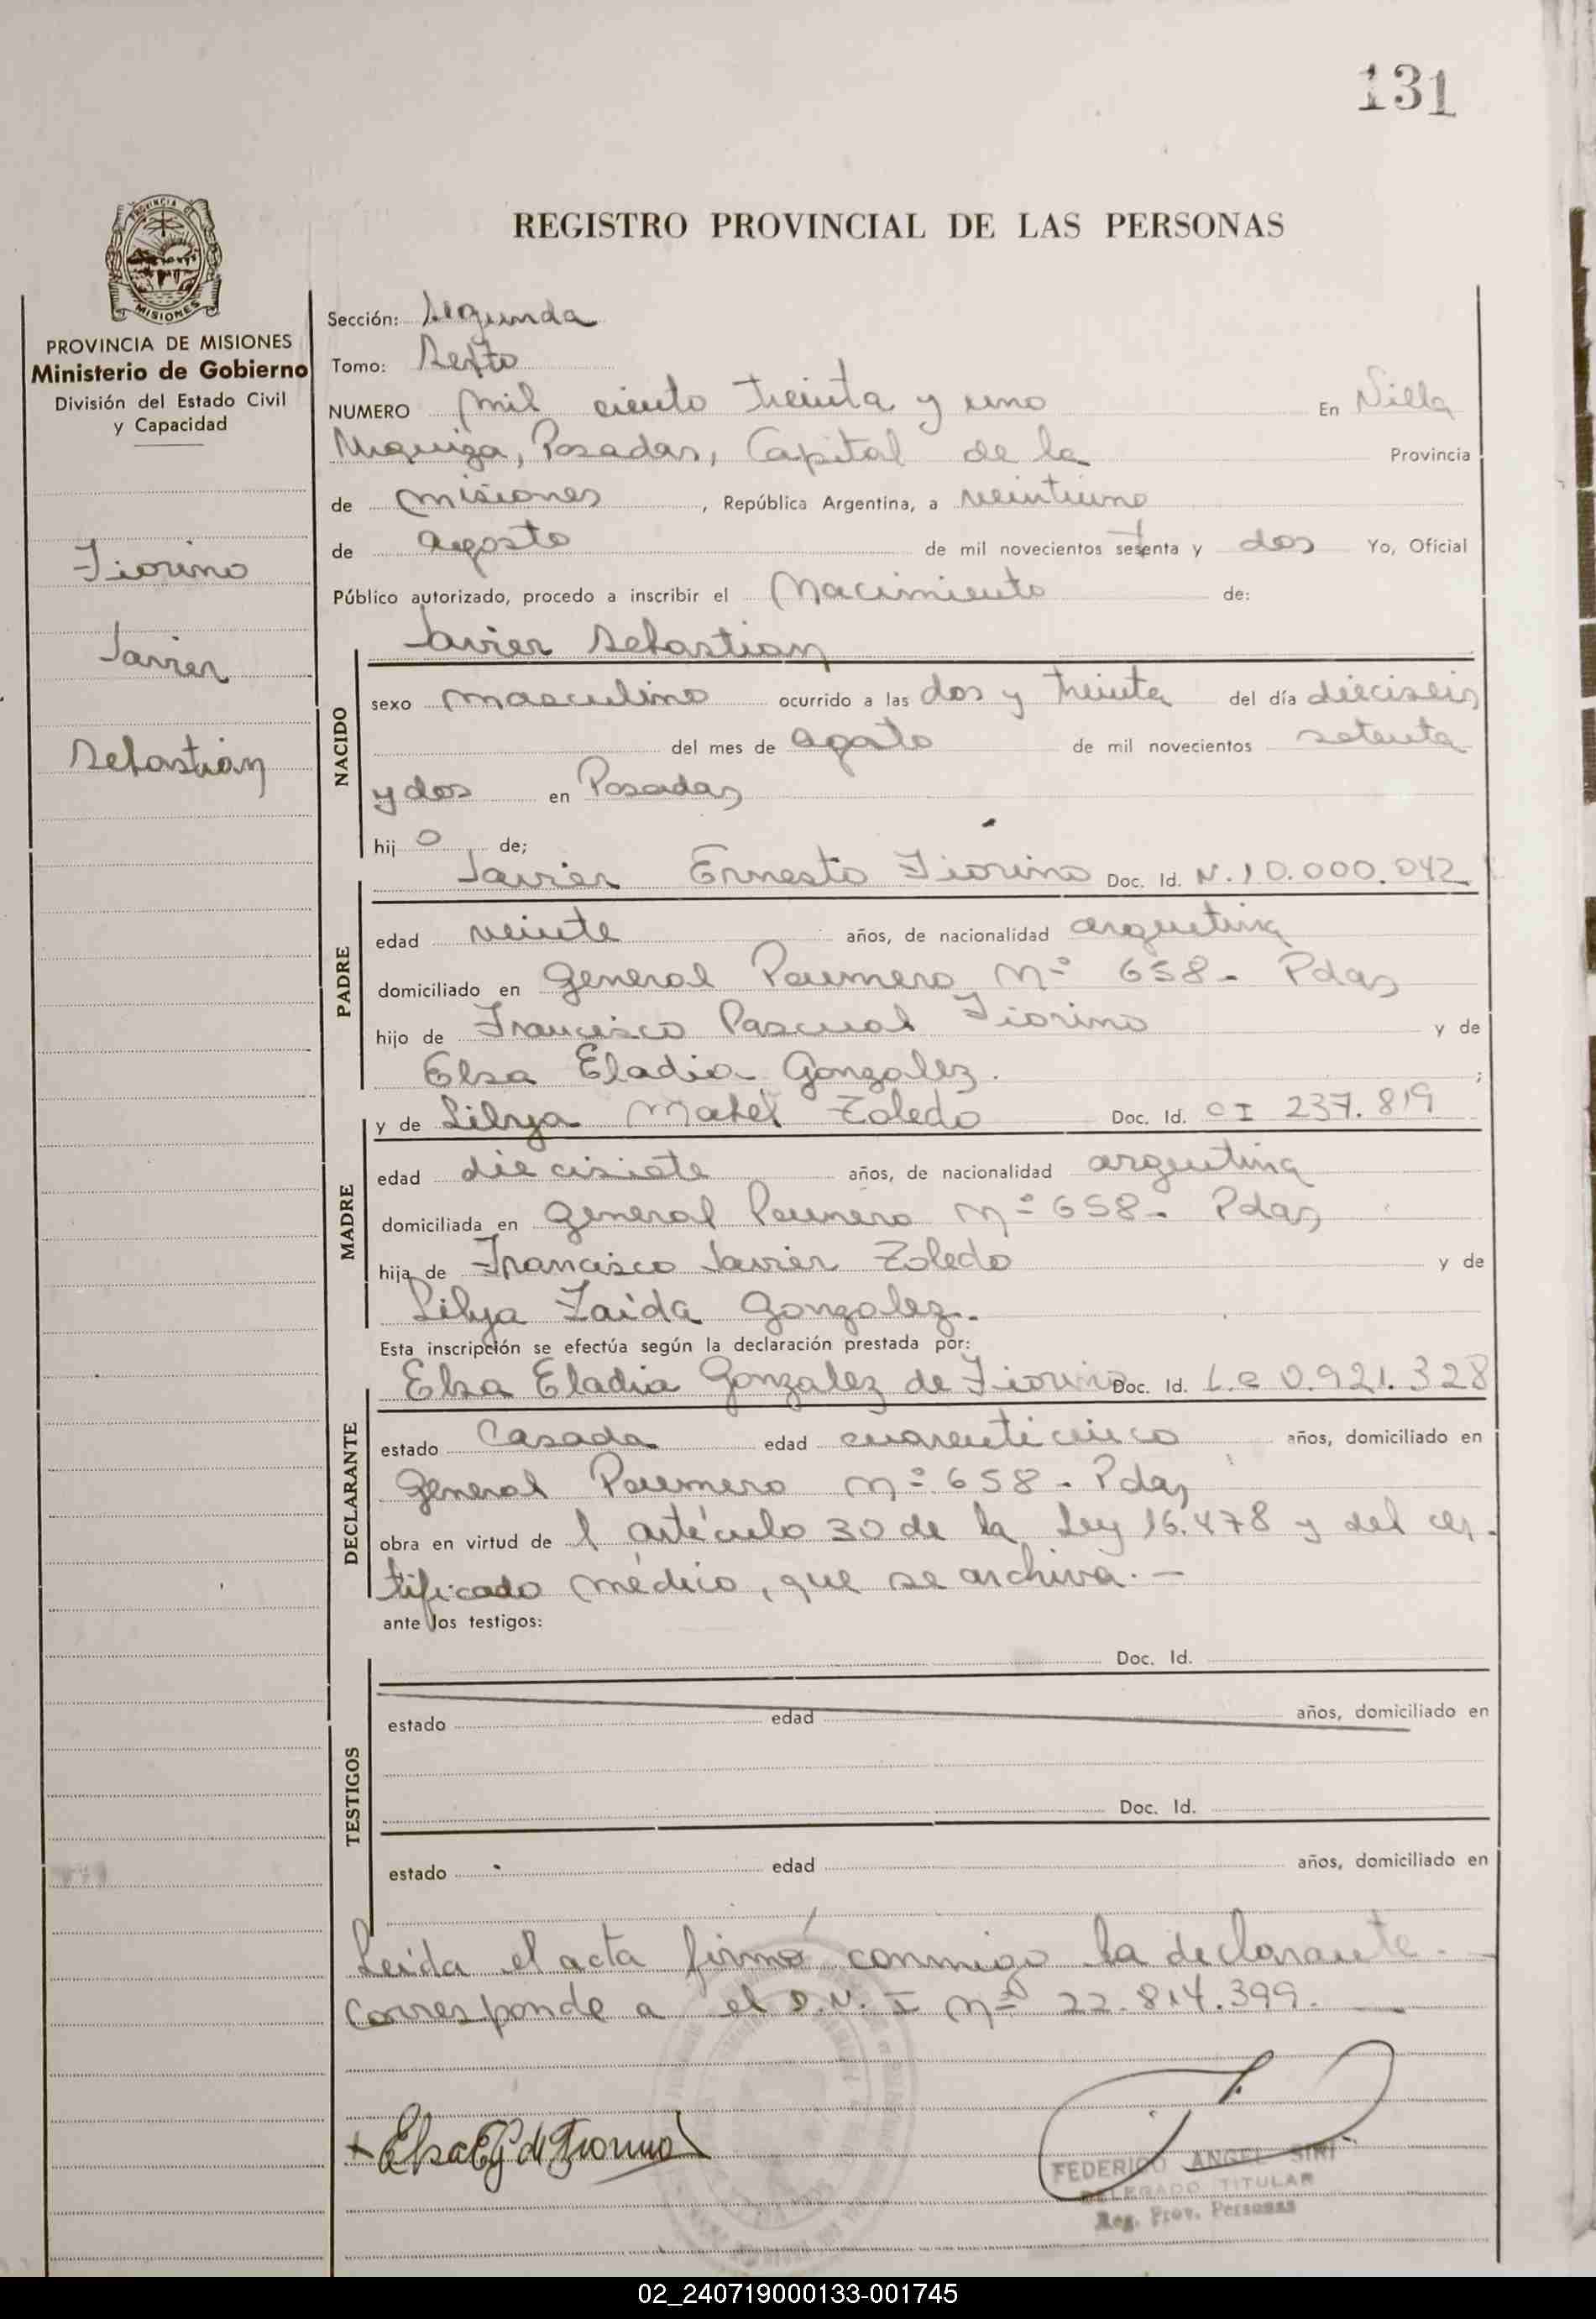 131
PROVINCIA DE
MISIONES
PROVINCIA DE MISIONES
Ministerio de Gobierno
División del Estado Civil
y Capacidad
Fiorino
Javier
Sebastián
REGISTRO PROVINCIAL DE LAS PERSONAS
Sección: Segunda
Tomo: Sexto
NUMERO mil ciento treinta y uno En Villa
Urquiza, Posadas, Capital de la Provincia
de misiones, República Argentina, a veintiuno
de agosto de mil novecientos setenta y dos Yo, Oficial
Público autorizado, procedo a inscribir el Nacimiento de:
Javier Sebastian
NACIDO
sexo masculino ocurrido a las dos y treinta del día dieciseis
del mes de agosto de mil novecientos setenta
y dos en Posadas
hij o de;
Javier Ernesto Fiorino Doc. Id. N. 10.000.042
PADRE
edad veinte años, de nacionalidad argentina
domiciliado en General Paunero Nº 658 - Pdas
hijo de Francisco Pascual Fiorino y de
Elsa Eladia Gonzalez. ;
y de Lilya Mabel Toledo Doc. Id. CI 237.819
MADRE
edad diecisiete años, de nacionalidad argentina
domiciliada en General Paunero Nº 658 - Pdas
hija de Francisco Javier Toledo y de
Lilya Zaida Gonzalez.
Esta inscripción se efectúa según la declaración prestada por:
Elsa Eladia Gonzalez de Fiorino Doc. Id. L.C 0.921.328
DECLARANTE
estado Casada edad cuarenticinco años, domiciliado en
General Paunero Nº 658 - Pdas
obra en virtud de l artículo 30 de la Ley 16.478 y del cer-
tificado médico, que se archiva. -
ante los testigos:
Doc. Id.
TESTIGOS
estado edad años, domiciliado en
Doc. Id.
estado edad años, domiciliado en
Leída el acta firmó conmigo la declarante. -
Corresponde a el D.N.I Nº 22.814.399. -
+ Elsa EG de Fiorino
FEDERICO ANGEL SIRI
DELEGADO TITULAR
Reg. Prov. Personas
02_240719000133-001745